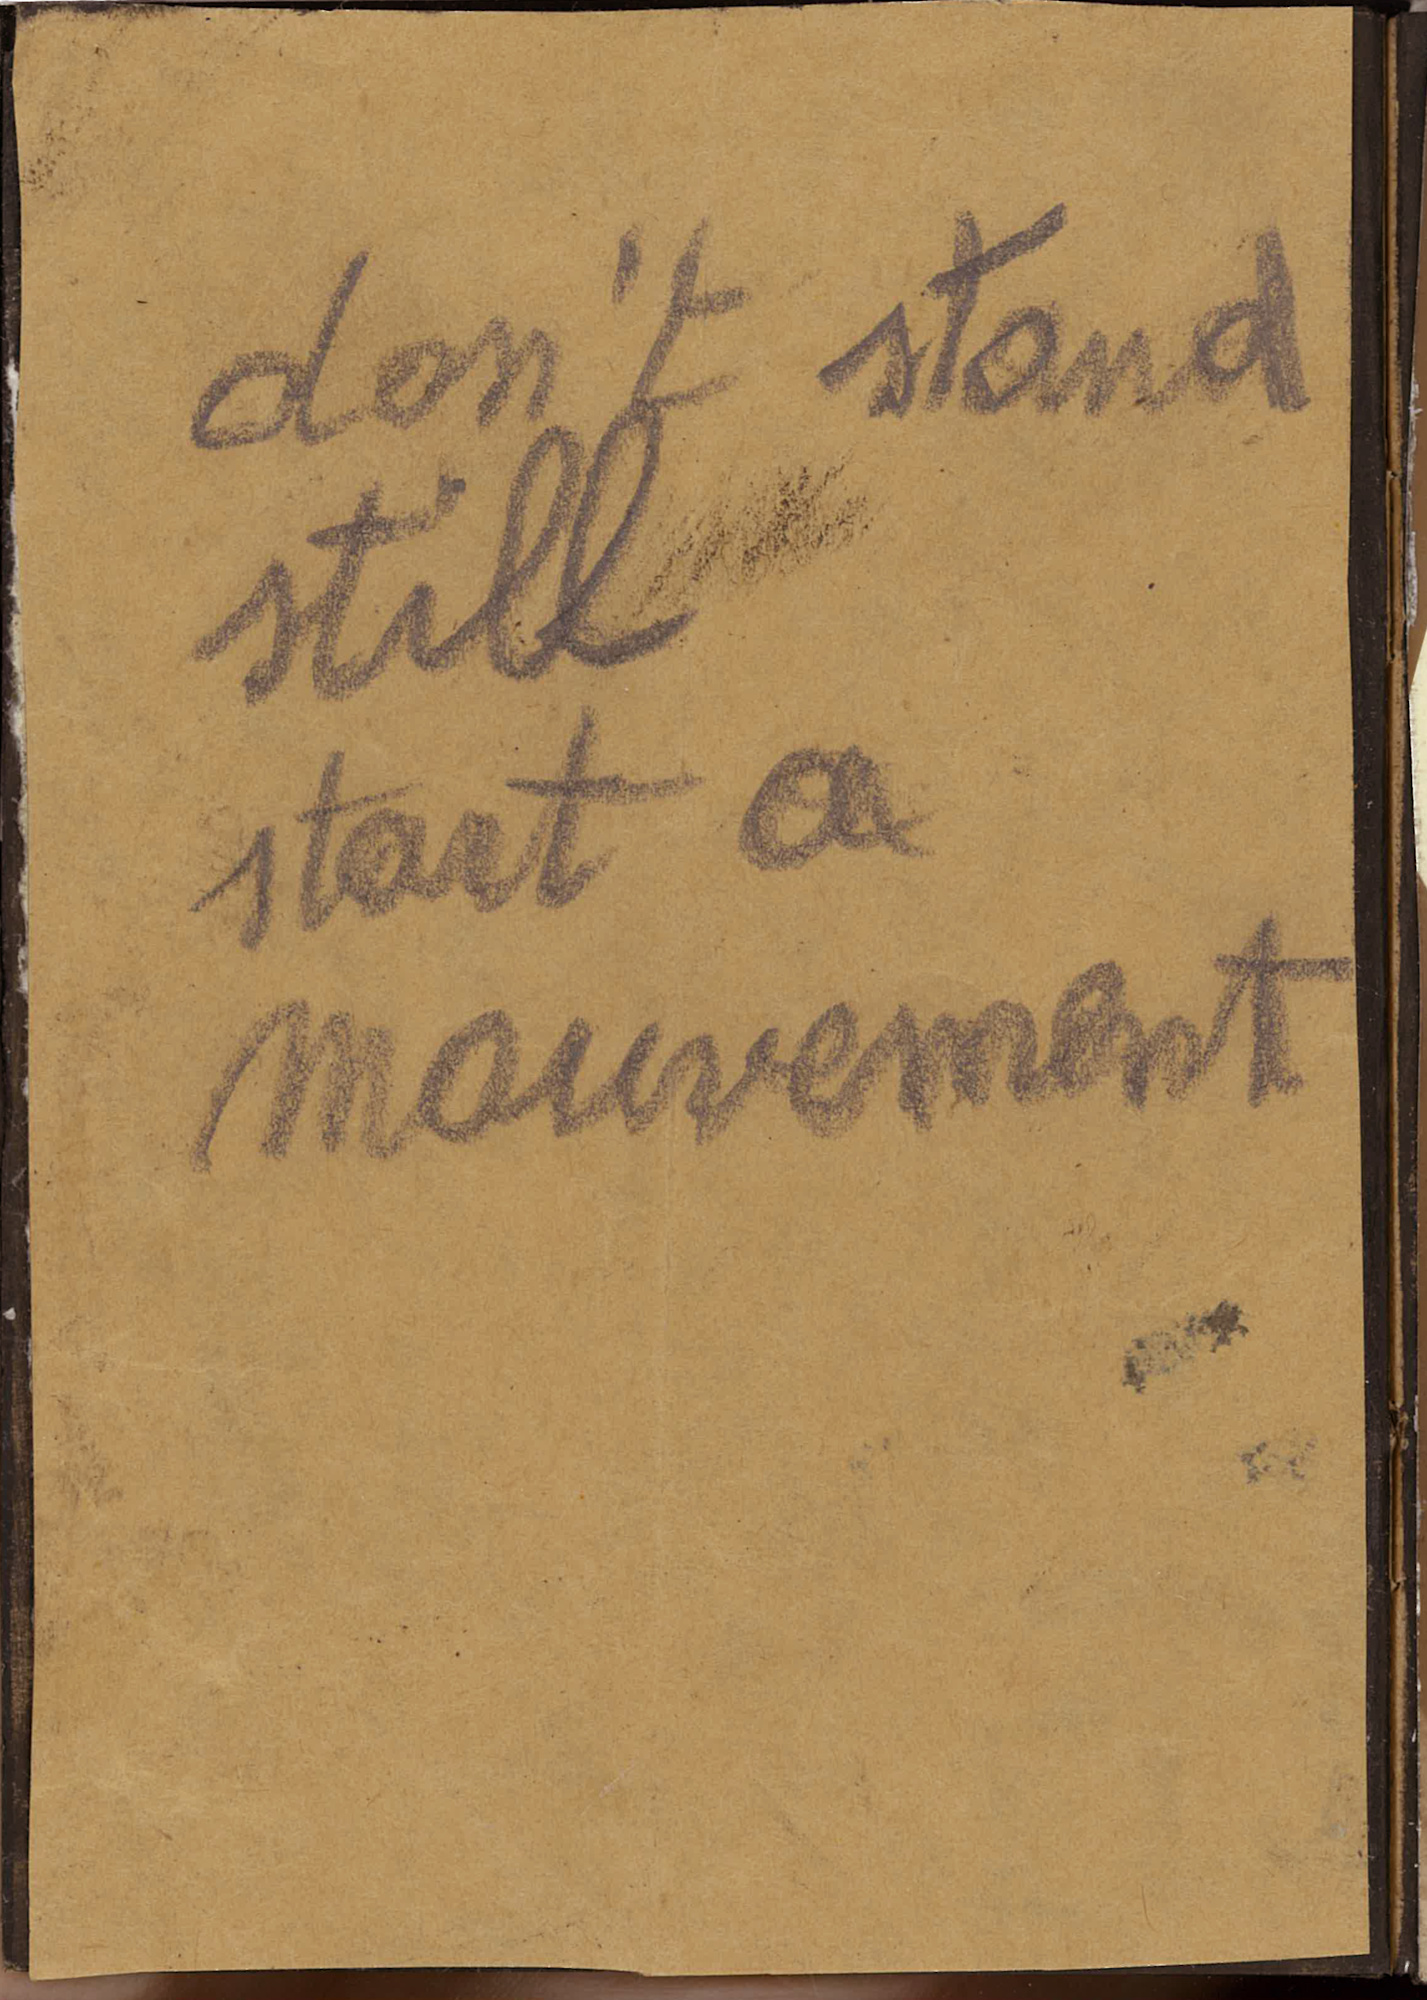 don't stand
still
start a
mouvement